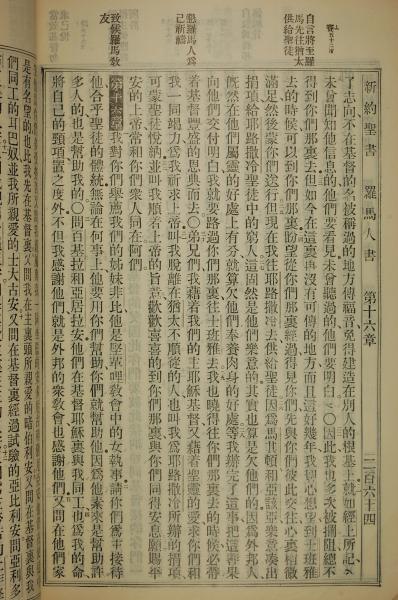 新約聖書 羅馬人書 第十六章 二百六十四
自言將至羅
馬先往猶太
供給聖徒
懇羅馬人為
己祈禱
致候羅馬教
友
了志向不在基督的名被稱過的地方傳福音免得建造在別人的根基上就如經上所記
未曾聞知他信息的他們要看見未曾聽過的他們要明白〇因此我也多次被攔阻總不
得到你們那裏去但如今在這裏再沒有可傳的地方而且這好幾年我切心想望到士班雅
去的時候可以到你們那裏盼望從你們那裏經過得見你們先與你們彼此交往心裏稍微
滿足然後蒙你們送行但現在我往耶路撒冷去供給聖徒因為馬其頓和亞該亞樂意湊出
捐項給耶路撒冷聖徒中的窮人這固然是他們樂意的其實也算是欠他們的因為外邦人
既然在他們屬靈的好處上有分就當欠他們奉養肉身的好處等我辦完了這事把這善果
向他們交付明白我就要路過你們那裏往士班雅去我也曉得往你們那裏去的時候必帶
着基督豐盛的恩典而去〇弟兄們我藉着我們的主耶穌基督又藉着聖靈的愛求你們和
我一同竭力為我祈求上帝叫我脫離在猶太不順從的人也叫我為耶路撒冷所辦的捐項
可蒙聖徒悅納並叫我順着上帝的旨意歡歡喜喜的到你們那裏與你們同得安息願賜平
安的上帝常和你們眾人同在阿們
第十六章 我對你們舉薦我們的姊妹非比他是堅革哩教會中的女執事請你們為主接待
他合乎聖徒的體統無論在何事上他要用你們幫助你們就幫助他因為他素來是幫助許
多人的也是幫助我的〇問百基拉和亞居拉安他們在基督耶穌裏與我同工也為我的命
將自己的頸項置之度外不但我感謝他們就是外邦的眾教會也感謝他們又問在他們家
是有名望的也比我先在基督裏又問我在主裏面所親愛的暗伯利安又問在基督裏與我
們同工的耳巴奴並我所親愛的士大古安又問在基督裏經過試驗的亞比利安問亞利多